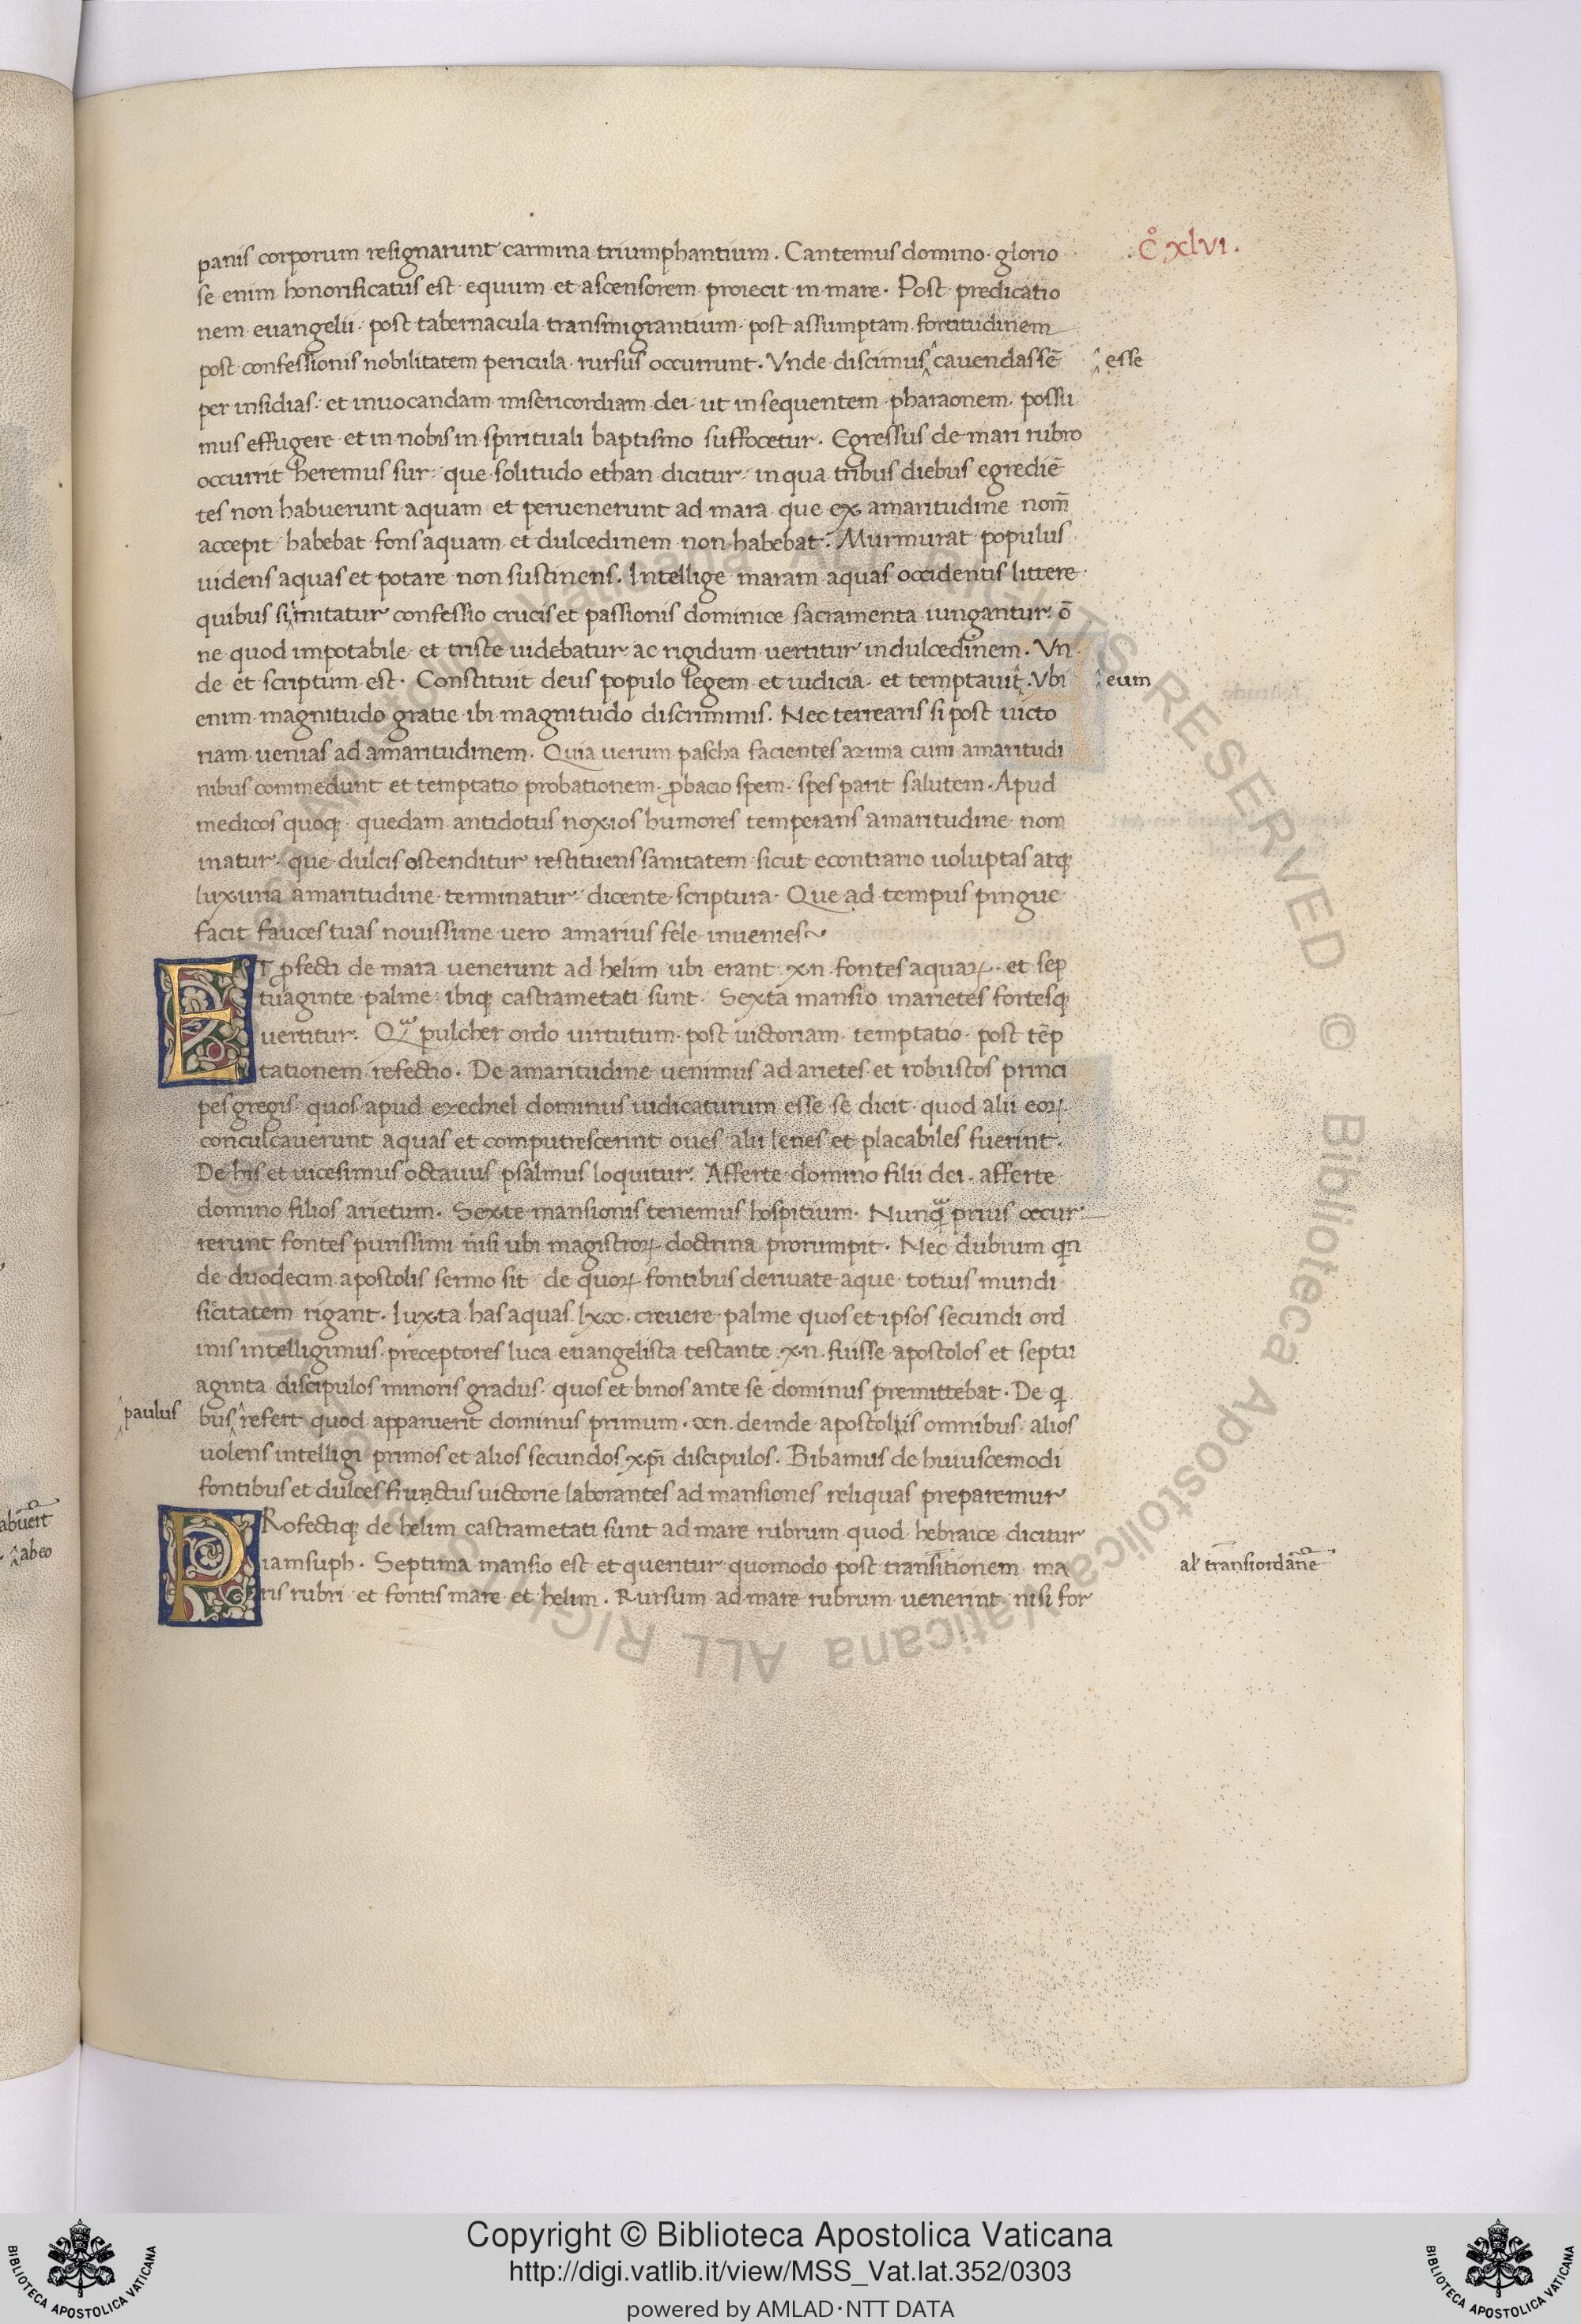 .C̊ xlvi.
panis corporum resignarunt carmina triumphantium. Cantemus domino. glorio
se enim honorificatus est equum et ascensorem proiecit in mare. Post predicatio
nem euangelii. post tabernacula transmigrantium. post assumptam fortitudinem
post confessionis nobilitatem pericula rursus occurrunt. Vnde discimus cauendas sē
esse
per insidias. et inuocandam misericordiam dei. ut insequentem pharaonem. possu
mus effugere et in nobis in spirituali baptismo suffocetur. Egressus de mari rubro
occurrit heremus sur. que solitudo ethan dicitur. in qua tribus diebus egrediē
tes non habuerunt aquam et peruenerunt ad mara que ex amaritudine nom̄
accepit habebat fons aquam et dulcedinem non habebat. Murmurat populus
uidens aquas et potare non sustinens. Intellige maram aquas occidentis littere
quibus si imitatur confessio crucis et passionis dominice sacramenta iungantur. ō
ne quod impotabile et triste uidebatur ac rigidum uertitur in dulcedinem. Vn
de et scriptum est. Constituit deus populo legem et iudicia. et temptauit. Vbi
eum
enim magnitudo gratie ibi magnitudo discriminis. Nec terrearis si post uicto
riam uenias ad amaritudinem. Quia uerum pascha facientes azima cum amaritudi
nibus commedunt et temptatio probationem. ꝓbacio spem. spes parit salutem. Apud
medicos quoqꝫ quedam antidotus noxios humores temperans amaritudine nom
inatur. que dulcis ostenditur restituens sanitatem sicut econtrario uoluptas atqꝫ
luxuria amaritudine terminatur. dicente scriptura. Que ad tempus pingue
facit fauces tuas nouissime uero amarius fele inuenies
ET ꝓfecti de mara uenerunt ad helim ubi erant .xii. fontes aquaꝝ. et sep
tuaginte palme. ibiqꝫ castrametati sunt. Sexta mansio in arietes fortesqꝫ
uertitur. Qᵃ pulcher ordo uirtutum. post uictoriam temptatio. post tēp
tationem refectio. De amaritudine uenimus ad arietes et robustos princi
pes gregis. quos apud ezechiel dominus iudicaturum esse se dicit quod alii eoꝝ
conculcauerunt aquas et computrescerint oues alii lenes et placabiles fuerint.
De his et uicesimus octauus psalmus loquitur. Afferte domino filii dei. afferte
domino filios arietum. Sexte mansionis tenemus hospitium. Nunqᵃ prius occur
rerunt fontes purissimi nisi ubi magistroꝝ doctrina prorumpit. Nec dubium qn̄
de duodecim apostolis sermo sit de quoꝝ fontibus deriuate aque totius mundi
siccitatem rigant. Iuxta has aquas lxx. creuere palme quos et ipsos secundi ord
inis intelligimus preceptores luca euangelista testante .xii. fuisse apostolos et septu
aginta discipulos minoris gradus. quos et binos ante se dominus premittebat. De qi
paulus
bus refert quod apparuerit dominus primum .xii. deinde apostolis omnibus. alios
uolens intelligi primos et alios secundos xp̄i discipulos. Bibamus de huiuscemodi
fontibus et dulces fructus uictorie laborantes ad mansiones reliquas preparemur
PRofectiqꝫ de helim castrametati sunt ad mare rubrum quod hebraice dicitur
iamsuph. Septima mansio est et queritur quomodo post transitionem ma
al' transiordanē
ris rubri et fontis mare et helim. Rursum ad mare rubrum uenerint. nisi for
abuerit
abeo
Copyright © Biblioteca Apostolica Vaticana
http://digi.vatlib.it/view/MSS_Vat.lat.352/0303
powered by AMLAD·NTT DATA
BIBLIOTECA APOSTOLICA VATICANA
BIBLIOTECA APOSTOLICA VATICANA